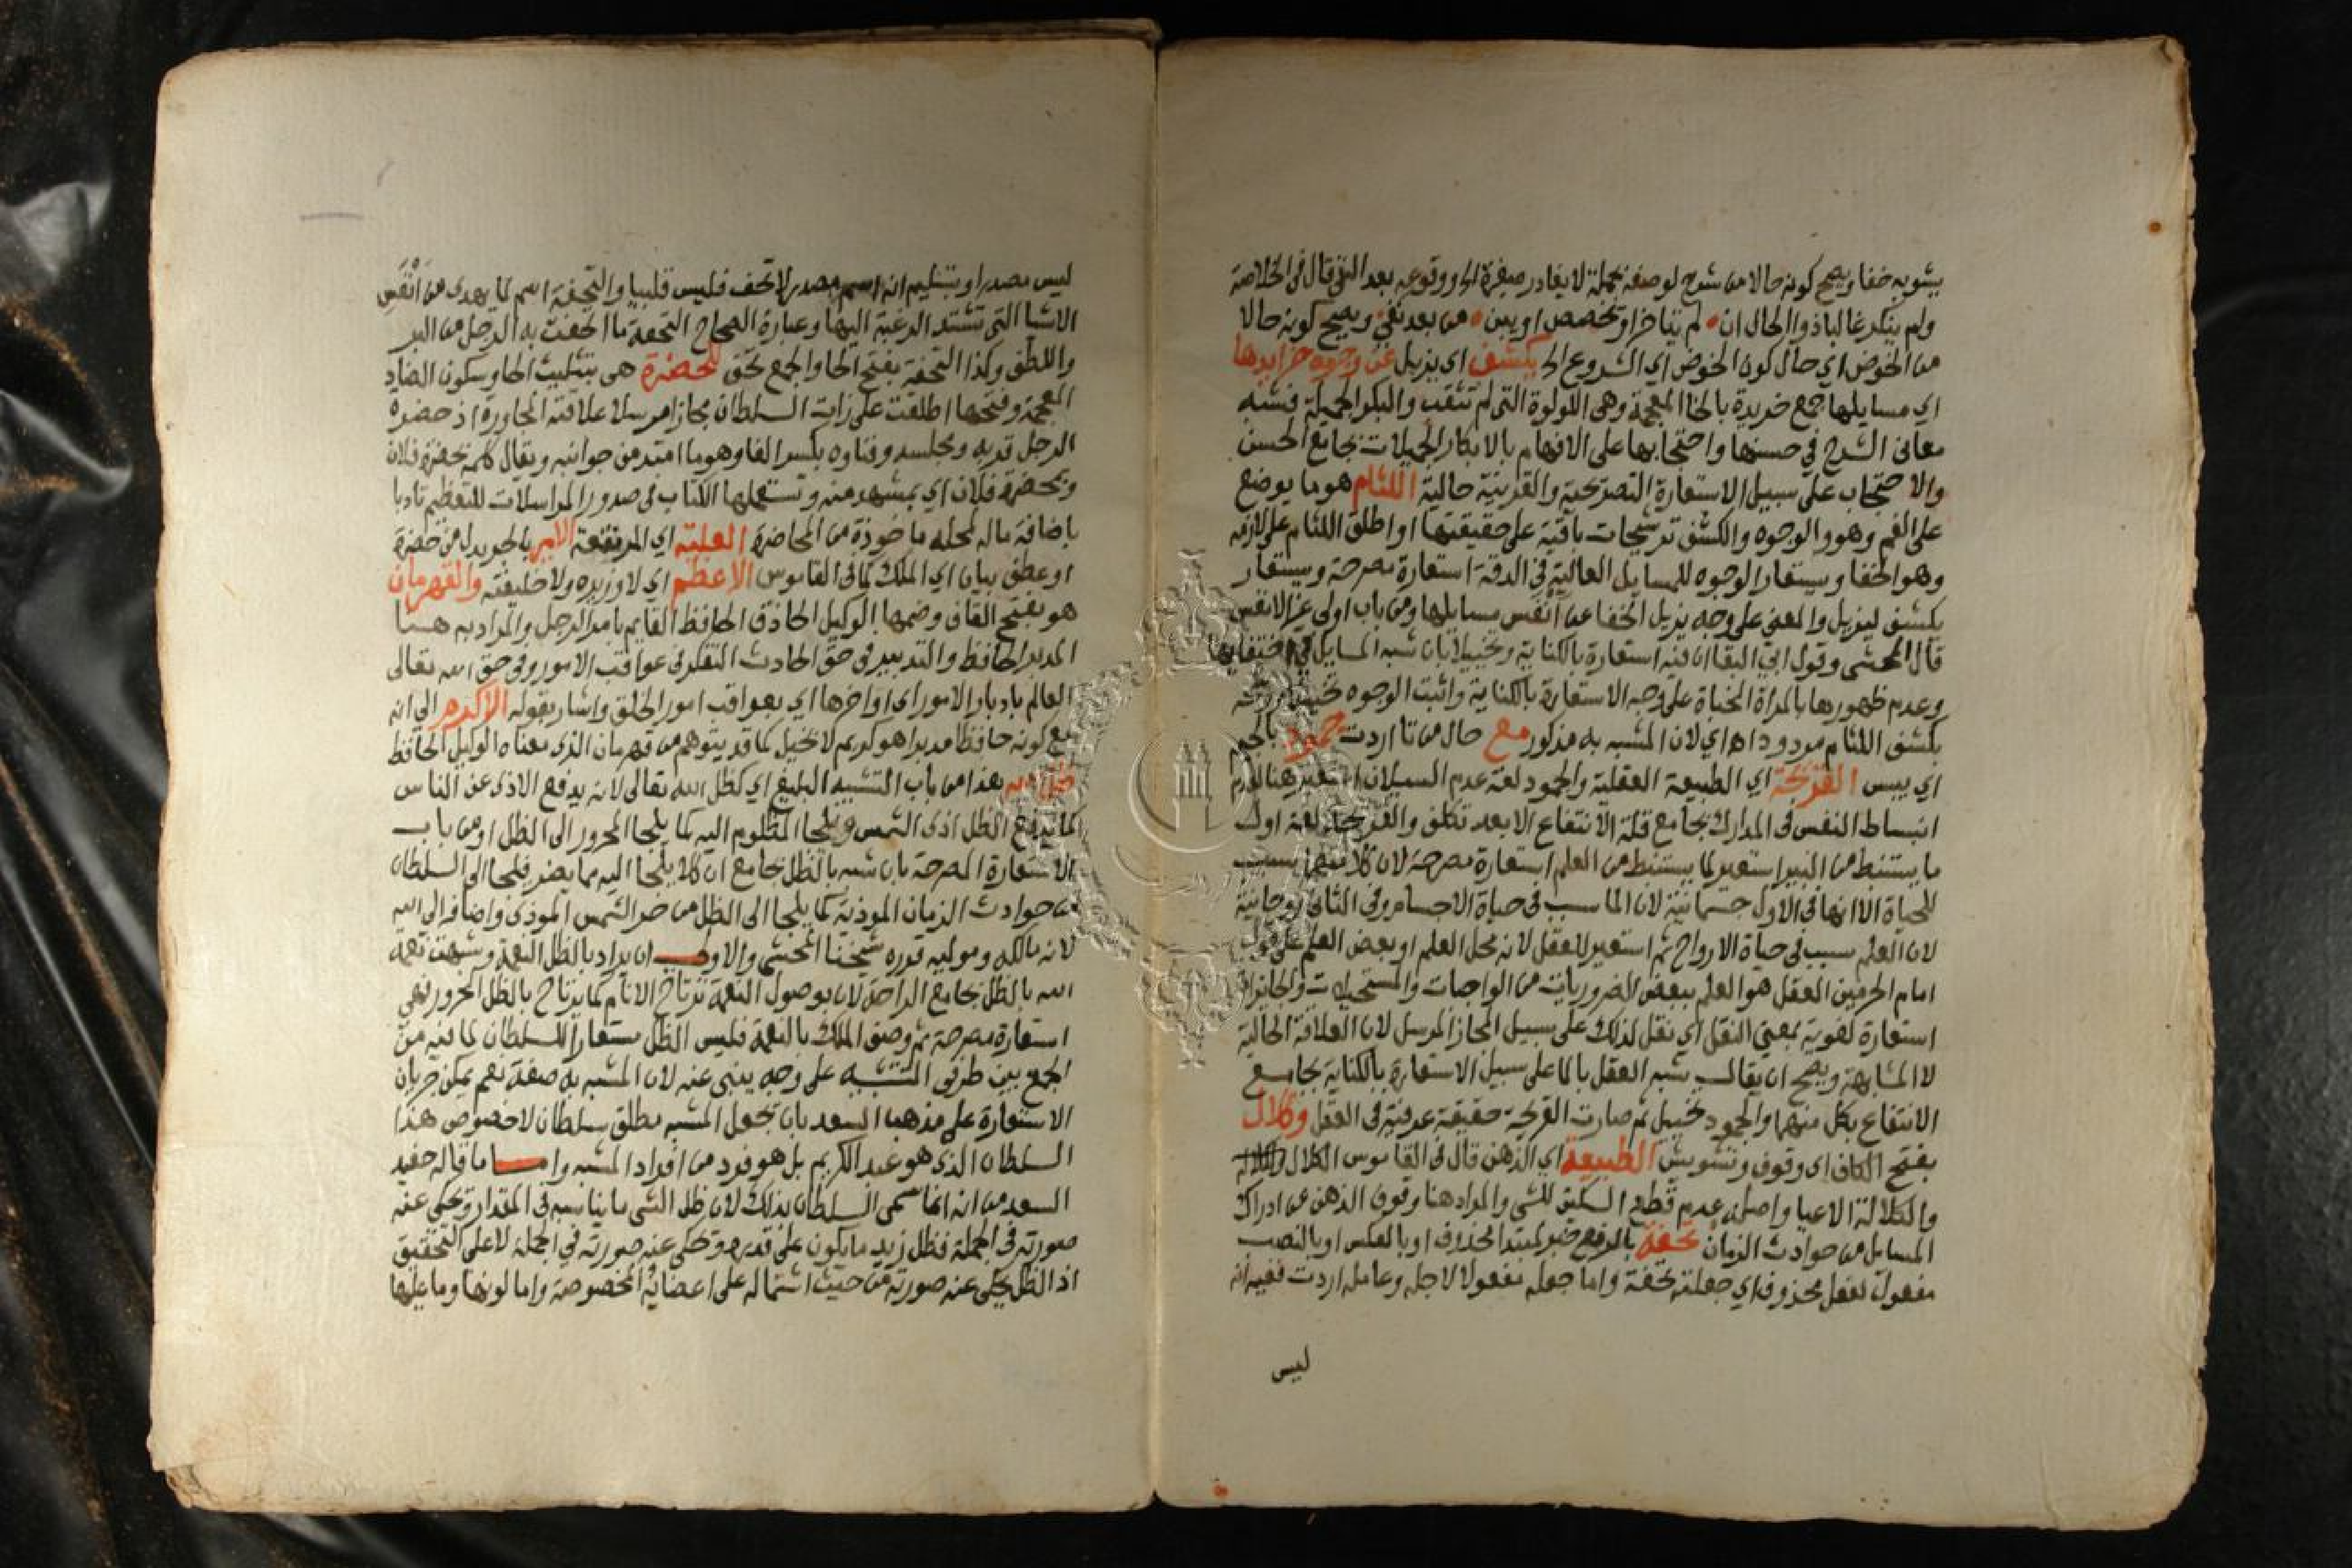 يشوبه خفا ويصح كونه حالا من شرح لوصفه بجملة لا يغادر صغيرة الخ ووقوعه بعد النفي قال في الخلاصة
ولم ينكر غالبا ذو الحال ان لم يتاخر او يخصص او يبن من بعد نفي ويصح كونه حالا
من الخوض اي حال كون الخوض اي الشروع الخ يكشف اي يزيل عن وجوه خرايدها
اي مسايلها جمع خريدة بالخا المعجمة وهي اللولوة التي لم تثقب والبكر الجميلة فشبه
معاني الشرح في حسنها واحتجابها على الافهام بالابكار الجميلات بجامع الحسن
والاحتجاب على سبيل الاستعارة التصريحية والقرينة حالية اللثام هو ما يوضع
على الفم وهو والوجوه والكشف ترشيحات باقية على حقيقتها او اطلق اللثام على لازمه
وهو الخفا ويستعار الوجوه للمسايل العالية في الدقة استعارة مصرحة ويستعار
يكشف ليزيل والمعنى على وجه يزيل الخفا عن انفس مسايلها ومن باب اولى غير الانفس
قال المحشي وقول ابي البقا ان فيه استعارة بالكناية وتخييلا بان شبه المسايل في اختفايها
وعدم ظهورها بالمراة المخباة على وجه الاستعارة بالكناية واثبت الوجوه تخييلا ورشحه
بكشف اللثام مردود اه اي لان المشبه به مذكور مع حال من تا اردت جمود بالجيم
اي يبس القريحة اي الطبيعة العقلية والجمود لغة عدم السيلان استعير هنا لعدم
انبساط النفس في المدارك بجامع قلة الانتفاع الا بعد تكلف والقريحة لغة اول
ما يستنبط من البير استعير لما يستنبط من العلم استعارة مصرحة لان كلا منهما سبب
للحياة الا انها في الاول جسمانية لان الما سبب في حياة الاجسام وفي الثاني روحانية
لان العلم سبب في حياة الارواح ثم استعير للعقل لانه محل العلم او بعض العلم على قول
امام الحرمين العقل هو العلم ببعض الضروريات من الواجبات والمستحيلات والجايزات
استعارة لغوية بمعنى النقل اي نقل لذلك على سبيل المجاز المرسل لان العلاقة الحالية
لا المشابهة ويصح ان يقال شبه العقل بالما على سبيل الاستعارة بالكناية بجامع
الانتفاع بكل منهما والجمود تخييل ثم صارت القريحة حقيقة عرفية في العقل وكلال
بفتح الكاف اي وقوف وتشويش الطبيعة اي الذهن قال في القاموس الكلال
والكلالة الاعيا واصله عدم قطع السكين للشي والمراد هنا وقوف الذهن عن ادراك
المسايل من حوادث الزمان تحفة بالرفع خبر لمبتدا محذوف او بالعكس او بالنصب
مفعول لفعل محذوف اي جعلته تحفة واما جعله مفعولا لاجله وعامله اردت ففيه انه
ليس
ليس مصدرا وبتسليم انه اسم مصدر لاتحف فليس قلبيا والتحفة اسم لما يهدى من انفس
الاشيا التي تشتد الرغبة اليها وعبارة الصحاح التحفة ما اتحفت به الرجل من البر
واللطف وكذا التحفة بفتح الحا والجمع تحف لحضرة هي بتثليث الحا وسكون الضاد
المعجمة وفتحها اطلقت على ذات السلطان مجازا مرسلا علاقته المجاورة اذ حضرة
الرجل قربه ومجلسه وفناوه بكسر الفا وهو ما امتد من جوانبه ويقال كلمه بحضرة فلان
وبحضرة فلان اي بمشهد منه وتستعملها الكتاب في صدور المراسلات للتعظيم تادبا
باضافة ماله لمحله ماخوذة من المحاضرة العلية اي المرتفعة الامير بالجر بدل من حضرة
او عطف بيان اي الملك كما في القاموس الاعظم اي لا وزيره ولا خليفته والقهرمان
هو بفتح القاف وضمها الوكيل الحاذق الحافظ القايم بامر الرجل والمراد به هنا
المدبر الحافظ والتدبير في حق الحادث التفكر في عواقب الامور وفي حق الله تعالى
العالم بادبار الامور اي اواخرها اي بعواقب امور الخلق واشار بقوله الاكرم الى انه
مع كونه حافظا مدبرا هو كريم لا بخيل كما قد يتوهم من قهرمان الذي معناه الوكيل الحافظ
ظل الله هذا من باب التشبيه البليغ اي كظل الله تعالى لانه يدفع الاذى عن الناس
كما يدفع الظل اذى الشمس ويلجا المظلوم اليه كما يلجا المحرور الى الظل او من باب
الاستعارة المصرحة بان شبه بالظل بجامع ان كلا يلجا اليه مما يضر فيلجا الى السلطان
من حوادث الزمان الموذية كما يلجا الى الظل من حر الشمس الموذي واضافه الى الله
لانه مالكه وموليه قرره شيخنا المحشي والاوجه ان يراد بالظل النعمة وشبهت نعمة
الله بالظل بجامع الراحة لان بوصول النعمة ترتاح الانام كما يرتاح بالظل المحرور فهي
استعارة مصرحة ثم وصف الملك بالنعمة فليس الظل مستعارا للسلطان لما فيه من
الجمع بين طرفي التشبيه على وجه ينبي عنه لان المشبه به صفة نعم يمكن جريان
الاستعارة على مذهب السعد بان يجعل المشبه مطلق سلطان لا خصوص هذا
السلطان الذي هو عبد الكريم بل هو فرد من افراد المشبه واما ما قاله حفيد
السعد من انه انما سمي السلطان بذلك لان ظل الشي ما يناسبه في المقدار ويحكي عنه
صورته في الجملة فظل زيد ما يكون على قدره ويحكي عنه صورته في الجملة لا على التحقيق
اذ الظل يحكي عنه صورته من حيث اشتماله على اعضائه المخصوصة واما لونها وما عليها